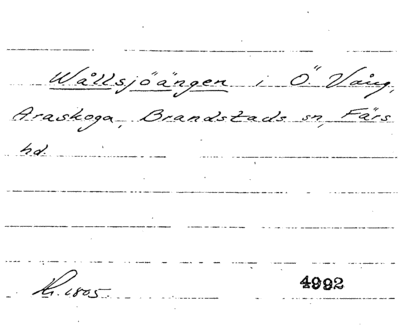 Wållsjöängen i Ö. Vång,
Araskoga, Brandstads sn, Färs
hd.
Kr. 1805. 4992